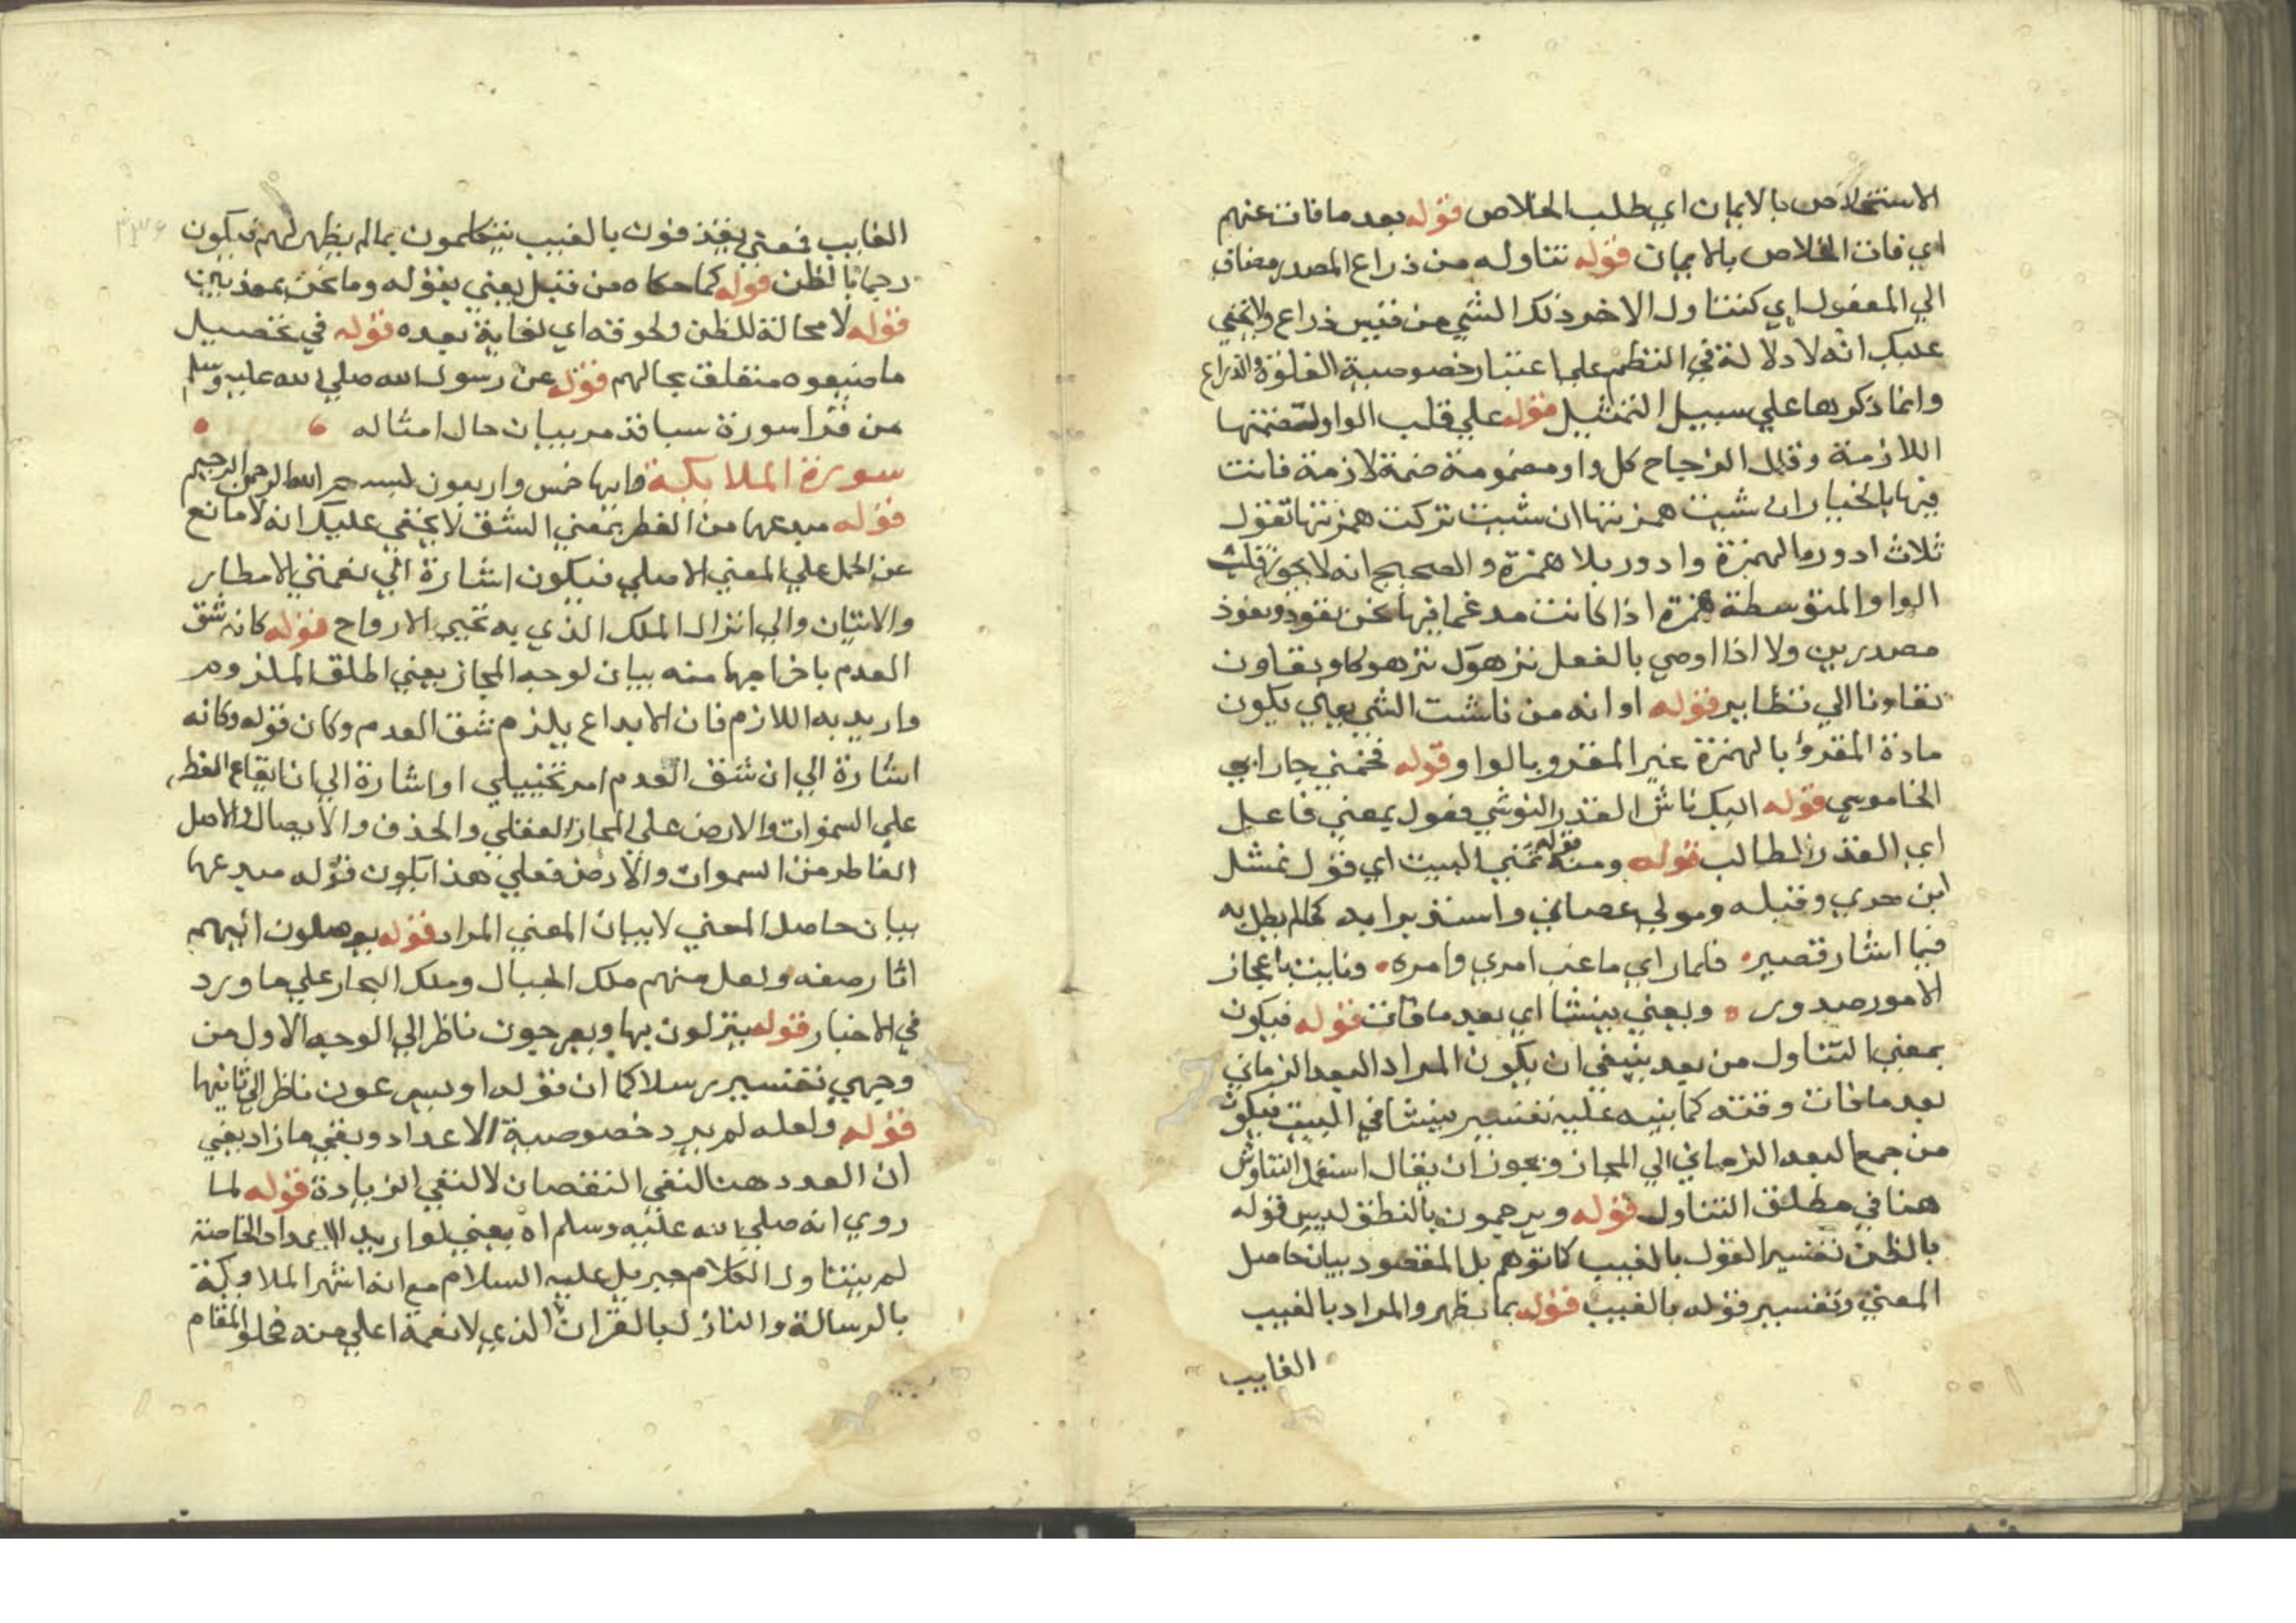 الاستخلاص بالايمان اي طلب الخلاص قوله بعد ما فات عنهم
اي فات الخلاص بالايمان قوله تناوله من ذراع المصدر مضاف
الي المفعول اي كتناول الاخر ذلك الشي من قيس ذراع ولا يخفي
عليك انه لا دلالة في النظم علي اعتبار خصوصية الغلوة والذراع
وانما ذكرها علي سبيل التمثيل قوله علي قلب الواو لضمتها
اللازمة وقال الزجاج كل واو مضمومة ضمة لازمة فانت
فيها بالخيار ان شيت همزتها ان شيت تركت همزتها تقول
ثلاث ادور بالهمزة وادور بلا همزة والصحيح انه لا يجوز قلب
الواو المتوسطة همزة اذا كانت مدغما فيها نحن تعود وتعوذ
مصدرين ولا اذا اوصي بالفعل ترهوك ترهوكا وتعاون
تعاونا الي نظاير قوله او انه من ناشت الشي يعني يكون
مادة المقروؤ بالهمزة غير المقرو بالواو قوله فخمني جار ابي
الخاموس قوله اليك ناش القدر النوش فعول بمعني فاعل
اي القدر الطالب قوله ومنه قوله تمني البيت اي قول نهشل
ابن حري وقبله ومولي عصاني واستبد برايه كما لم يطل به
فيما اشار قصير فلما راي ما غب امري وامره وناءت باعجاز
الامور صدور ويعني بينشا اي بعد ما فات قوله فيكون
بمعني التناول من بعد ينبغي ان يكون المراد البعد الزماني
بعد ما فات وقته كما ينبه عليه تفسير بينشا في البيت فيكون
من جمع البعد الزماني الي المجاز ويجوز ان يقال استعمل التناوش
هنا في مطلق التناول قوله ويرجمون بالنطق ليس قوله
بالظن تفسير القول بالغيب كما توهم بل المقصود بيان حاصل
المعني وتفسير قوله بالغيب قوله بما يظهر والمراد بالغيب
الغايب
الغايب فمعني يقذفون بالغيب يتكلمون بما لم يظهر لهم فيكون
رجما بالظن قوله كما حكاه من قبل يعني بقوله وما نحن بمعذبين
قوله لا محالة للظن ولحوقه اي لغاية بعده قوله في تحصيل
ما ضيعوه متعلق بحالهم قوله عن رسول الله صلي الله عليه وسلم
من قرا سورة سبا قد مر بيان حال امثاله
سورة الملايكة وايها خمس واربعون بسم الله الرحمن الرحيم
قوله مبدعها من الفطر بمعني الشق لا يخفي عليك انه لا مانع
عن الحمل علي المعني الاصلي فيكون اشارة الي نعمتي الامطار
والانبات والي انزال الملك الذي به تحيي الارواح قوله كانه شق
العدم باخراجهما منه بيان لوجه المجاز يعني اطلق الملزوم
واريد به اللازم فان الابداع يلزم شق العدم وكان قوله وكانه
اشارة الي ان شق العدم امر تخييلي او اشارة الي ان ايقاع الفطر
علي السموات والارض علي المجاز العقلي والحذف والايصال والاصل
الفاطر من السموات والارض فعلي هذا يكون قوله مبدعها
بيان حاصل المعني لا بيان المعني المراد قوله يوصلون اليهم
اثار صنعه ولعل منهم ملك الجبال وملك البحار علي ما ورد
في الاخبار قوله ينزلون بها ويعرجون ناظر الي الوجه الاول من
وجهي تفسير رسلا كما ان قوله او يسرعون ناظر الي ثانيها
قوله ولعله لم يرد خصوصية الاعداد ونفي ما زاد يعني
ان العدد هنا لنفي النقصان لا لنفي الزيادة قوله لما
روي انه صلي الله عليه وسلم اه يعني لو اريد الاعداد الخاصة
لم يتناول الكلام جبريل عليه السلام مع انه اشهر الملايكة
بالرسالة والنازل بالقران الذي لا نعمة اعلي منه فخلو المقام